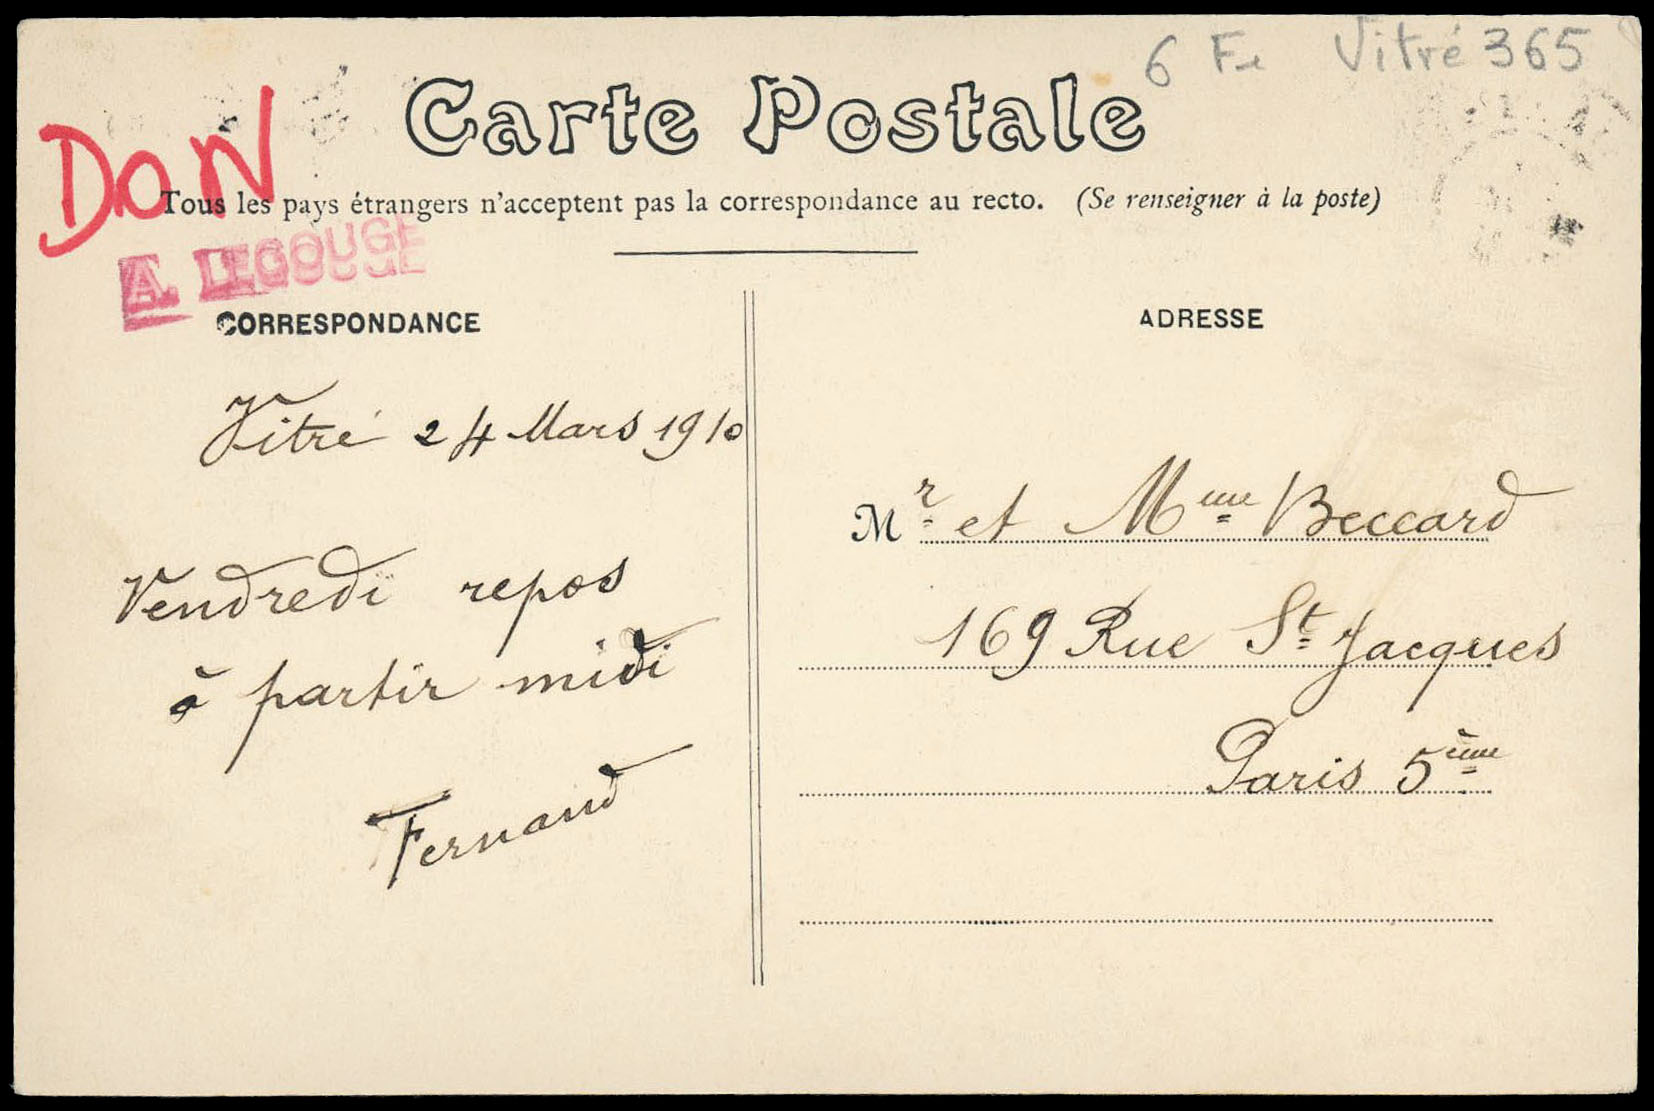 6 Fi Vitré 365
Carte Postale
DON
Tous les pays étrangers n'acceptent pas la correspondance au recto. (Se renseigner à la poste)
A. LEGOUGE
CORRESPONDANCE
Vitré 24 Mars 1910
Vendredi repos
à partir midi
Fernand
ADRESSE
Mr et Mme Beccard
169 Rue St Jacques
Paris 5ème